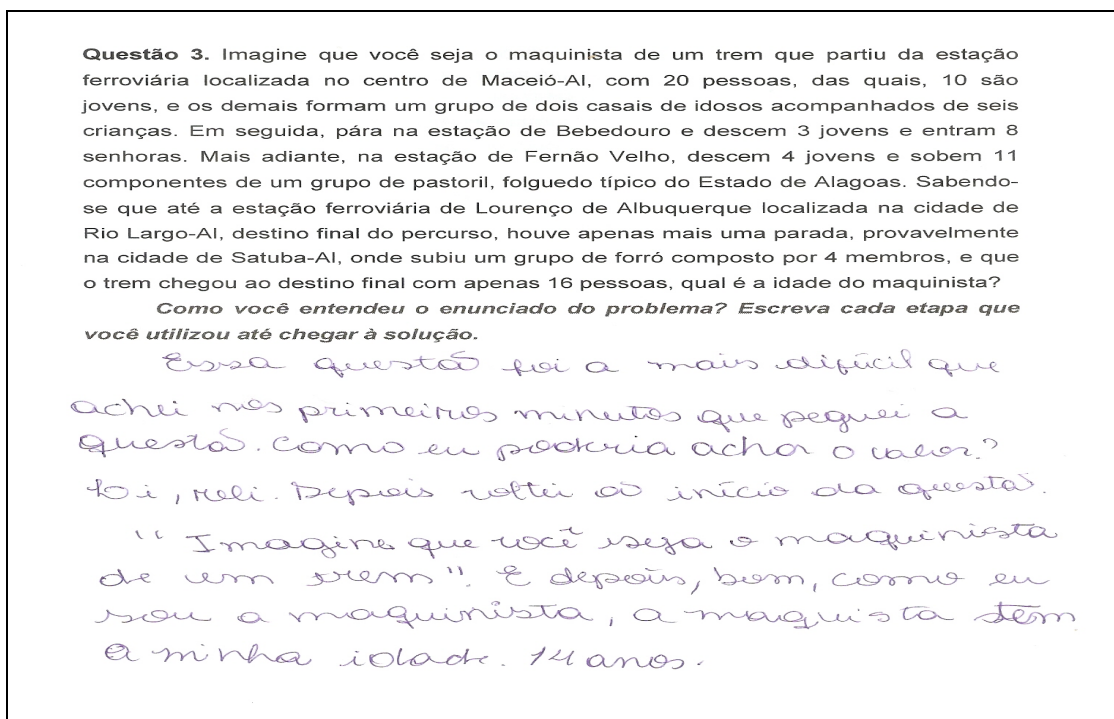 Questão 3. Imagine que você seja o maquinista de um trem que partiu da estação
ferroviária localizada no centro de Maceió-Al, com 20 pessoas, das quais, 10 são
jovens, e os demais formam um grupo de dois casais de idosos acompanhados de seis
crianças. Em seguida, pára na estação de Bebedouro e descem 3 jovens e entram 8
senhoras. Mais adiante, na estação de Fernão Velho, descem 4 jovens e sobem 11
componentes de um grupo de pastoril, folguedo típico do Estado de Alagoas. Sabendo-
se que até a estação ferroviária de Lourenço de Albuquerque localizada na cidade de
Rio Largo-Al, destino final do percurso, houve apenas mais uma parada, provavelmente
na cidade de Satuba-Al, onde subiu um grupo de forró composto por 4 membros, e que
o trem chegou ao destino final com apenas 16 pessoas, qual é a idade do maquinista?
Como você entendeu o enunciado do problema? Escreva cada etapa que
você utilizou até chegar à solução.
Essa questão foi a mais difícil que
achei nos primeiros minutos que peguei a
questão. Como eu poderia achar o valor?
Li, reli. Depois voltei ao início da questão.
"Imagine que você seja o maquinista
de um trem". E depois, bom, como eu
sou a maquinista, a maquista tem
a minha idade. 14 anos.